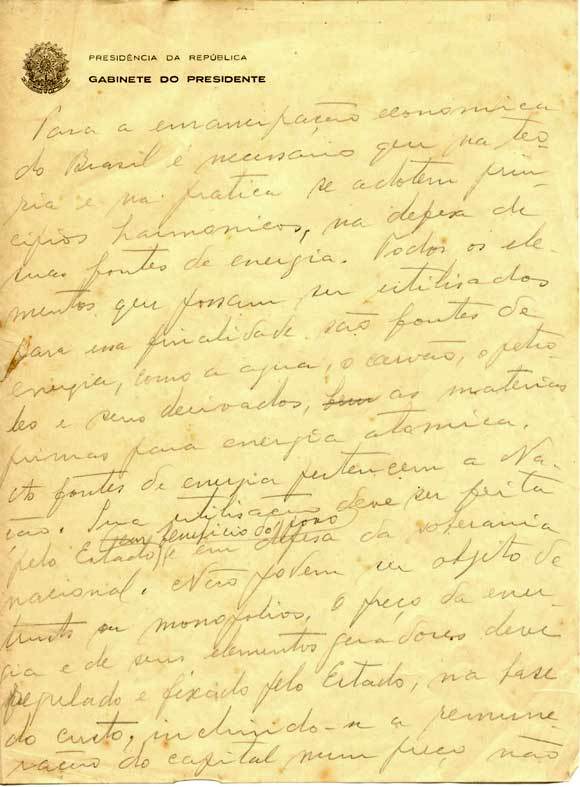 PRESIDÊNCIA DA REPÚBLICA
GABINETE DO PRESIDENTE
Para a emancipação economica
do Brasil é necessario que na teo-
ria e na pratica se adotem prin-
cipios harmonicos, na defesa de
suas fontes de energia. Todos os ele-
mentos que possam ser utilisados
para essa finalidade são fontes de
energia, como a agua, o carvão, o petro-
leo e seus derivados, as materias
primas para energia atomica.
As fontes de energia pertencem a Na-
ção. Sua utilisação deve ser feita
em beneficio do povo
pelo Estado, e em defesa da soberania
nacional. Não podem ser objeto de
trusts ou monopolios. O preço da ener-
gia e de seus elementos geradores deve
regulado e fixado pelo Estado, na base
do custo, incluindo-se a remune-
ração do capital num preço não